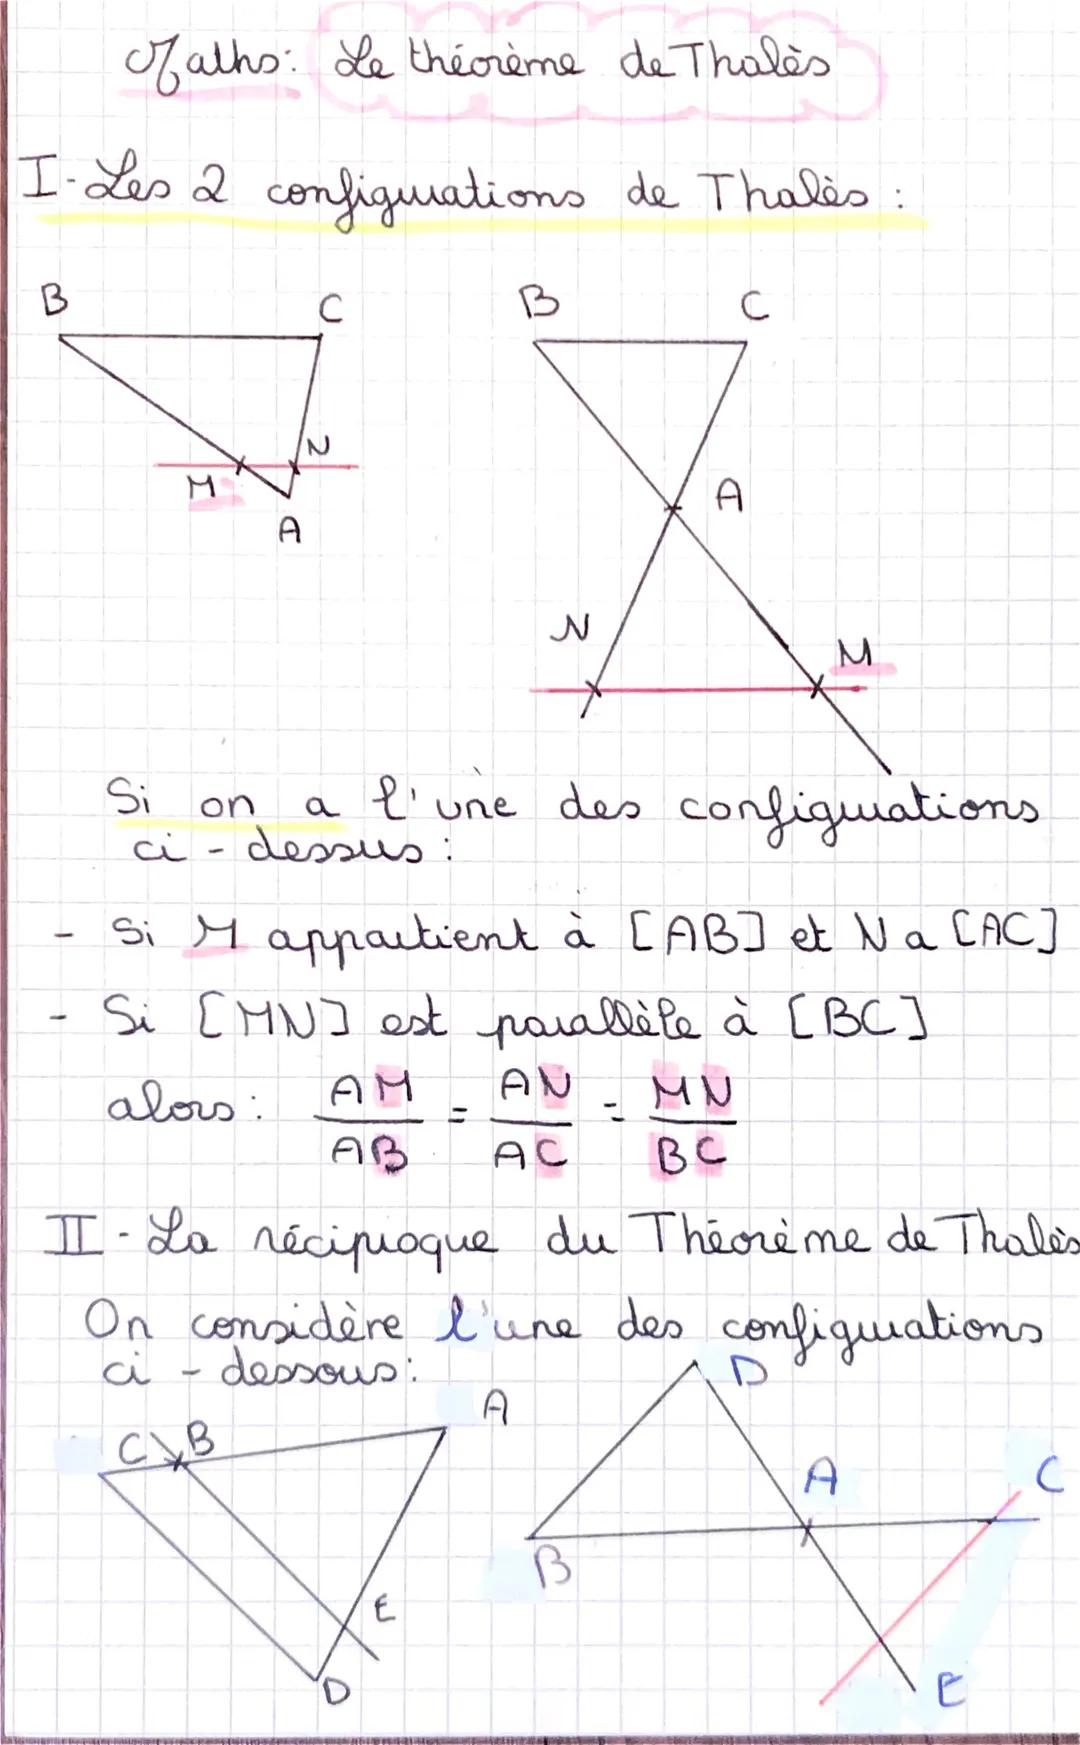 Maths: Le théorème de Thalès
I- Les 2 configurations de Thalès :
B C B C
N
M A
A
N
M
Si on a l'une des configurations
ci-dessus :
- Si M appartient à [AB] et N a [AC]
- Si [MN] est parallèle à [BC]
alors : AM/AB = AN/AC = MN/BC
II- La réciproque du Théorème de Thalès
On considère l'une des configurations
ci-dessous :
D
A
C B
A C
B
E
D
E